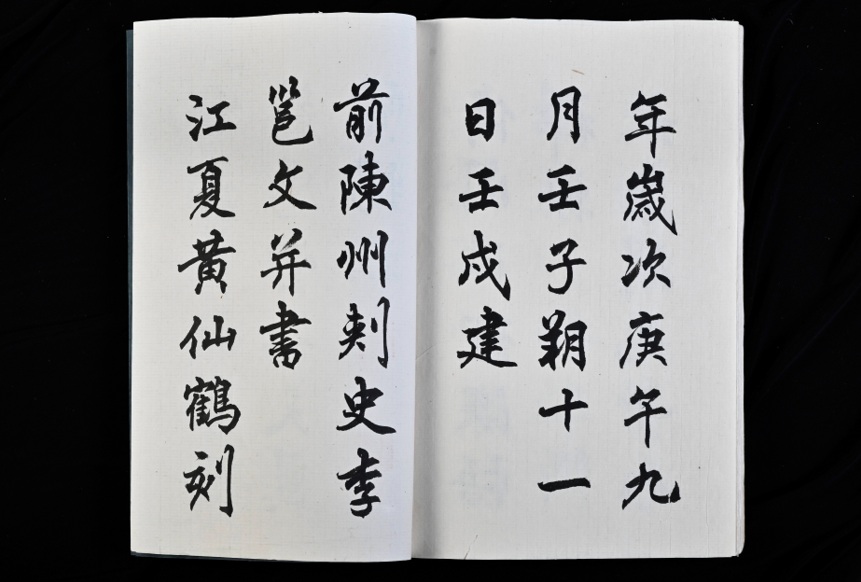 年歲次庚午九
月壬子朔十一
日壬戌建
前陳州刺史李
邕文并書
江夏黃仙鶴刻